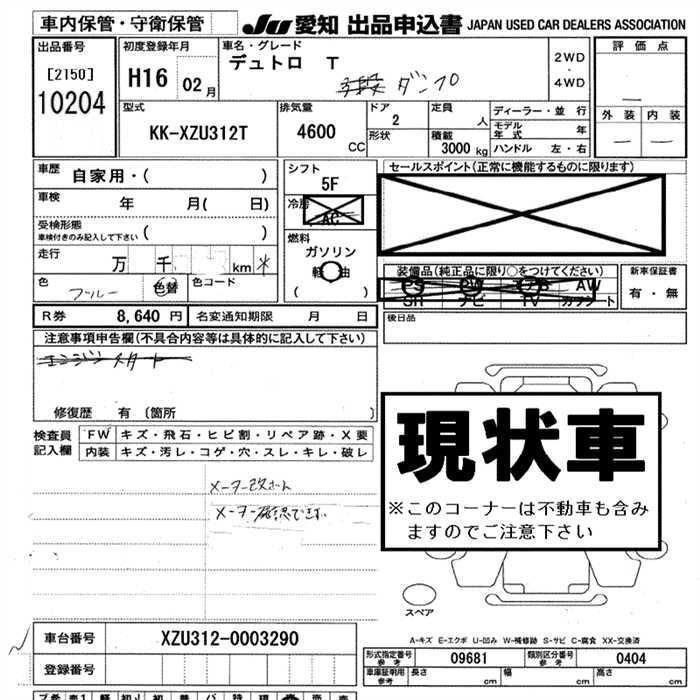 車内保管・守衛保管
JU 愛知 出品申込書 JAPAN USED CAR DEALERS ASSOCIATION
出品番号
[2150]
10204
初度登録年月
H16 02月
車名・グレード
デュトロ T
ダンプ
2WD
・
4WD
評価点
外装 内装
型式
KK-XZU312T
排気量
4600
CC
ドア
2
形状
定員
人
積載
3000 kg
ディーラー・並行
モデル年式 年
ハンドル 左・右
車歴
自家用・( )
車検
年 月( 日)
受検形態
車検付きのみ記入して下さい ( )
走行
万 千 km
色
ブルー
色替
色コード
シフト
5F
冷房
AC
燃料
ガソリン
軽油
( )
セールスポイント(正常に機能するものに限ります)
装備品(純正品に限り○をつけてください)
PS PW AB AW
SR ナビ TV カワシート
新車保証書
有・無
R券 8,640 円 名変通知期限 月 日
後日品
注意事項申告欄(不具合内容等は具体的に記入して下さい)
エンジンスタート
修復歴 有 (箇所 )
検査員記入欄
FW キズ・飛石・ヒビ割・リペア跡・X要
内装 キズ・汚レ・コゲ・穴・スレ・キレ・破レ
メーター改ざん
メーター確認できず
現状車
※このコーナーは不動車も含みますのでご注意下さい
スペア
A-キズ E-エクボ U-凹み W-補修跡 S-サビ C-腐食 XX-交換済
車台番号 XZU312-0003290
登録番号
形式指定番号 参考 09681 類別区分番号 参考 0404
車庫証明用 参考 長さ cm 幅 cm 高さ cm